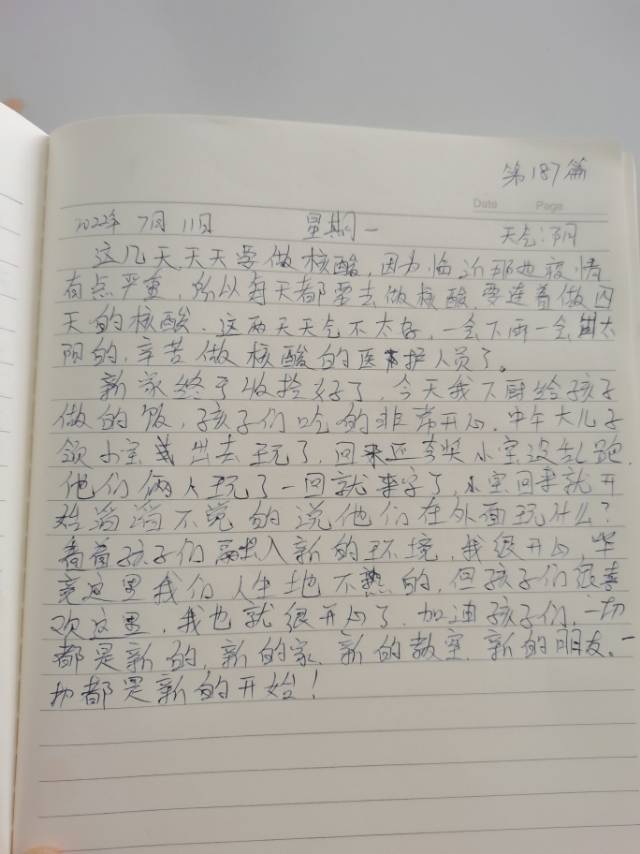 第187篇
Date Page
2022年 7月 11日 星期一 天气:阴
这几天天天要做核酸,因为临近那地疫情
有点严重,所以每天都要去做核酸,要连着做四
天的核酸。这两天天气不太好,一会下雨一会出太
阳的,辛苦做核酸的医护人员了。
新家终于收拾好了,今天我下厨给孩子
做的饭,孩子们吃的非常开心,中午大儿子
领小宝出去玩了,回来还夸奖小宝没乱跑,
他们俩人玩了一回就来家了,小宝回来就开
始滔滔不觉的说他们在外面玩什么?
看着孩子们融入新的环境,我很开心,毕
竟这里我们人生地不熟的,但孩子们很喜
欢这里,我也就很开心了,加油孩子们,一切
都是新的,新的家,新的教室,新的朋友,一
切都是新的开始!